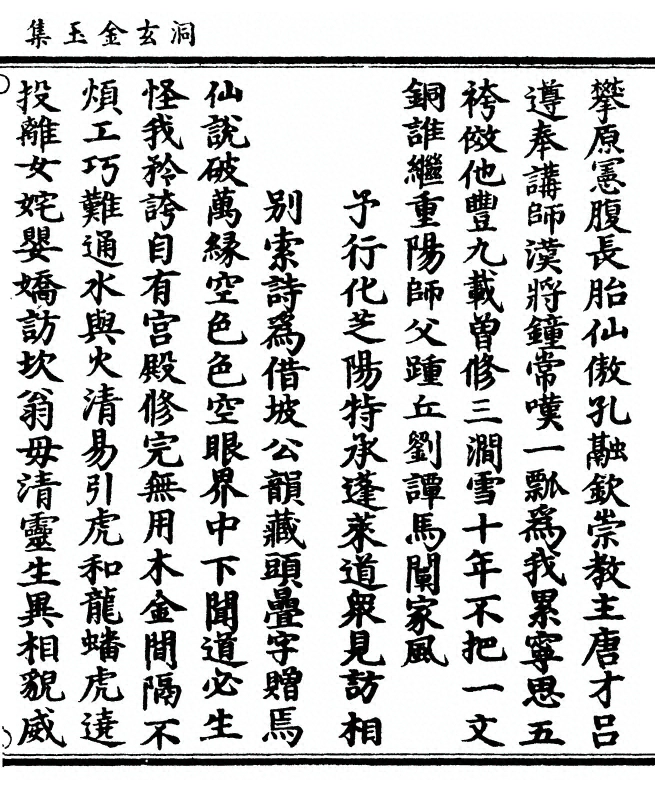 洞玄金玉集
攀原憲腹長胎仙傲孔融欽崇教主唐才呂
遵奉講師漢將鐘常嘆一瓢為我累寧思五
袴倣他豐九載曾修三澗雪十年不把一文
銅誰繼重陽師父踵丘劉譚馬闡家風
予行化芝陽特承蓬萊道衆見訪相
別索詩為借坡公韻藏頭疊字贈焉
仙說破萬緣空色色空眼界中下聞道必生
怪我矜誇自有宮殿修完無用木金間隔不
煩工巧難通水與火清易引虎和龍蟠虎遶
投離女姹嬰嬌訪坎翁毋清靈生異相貌威